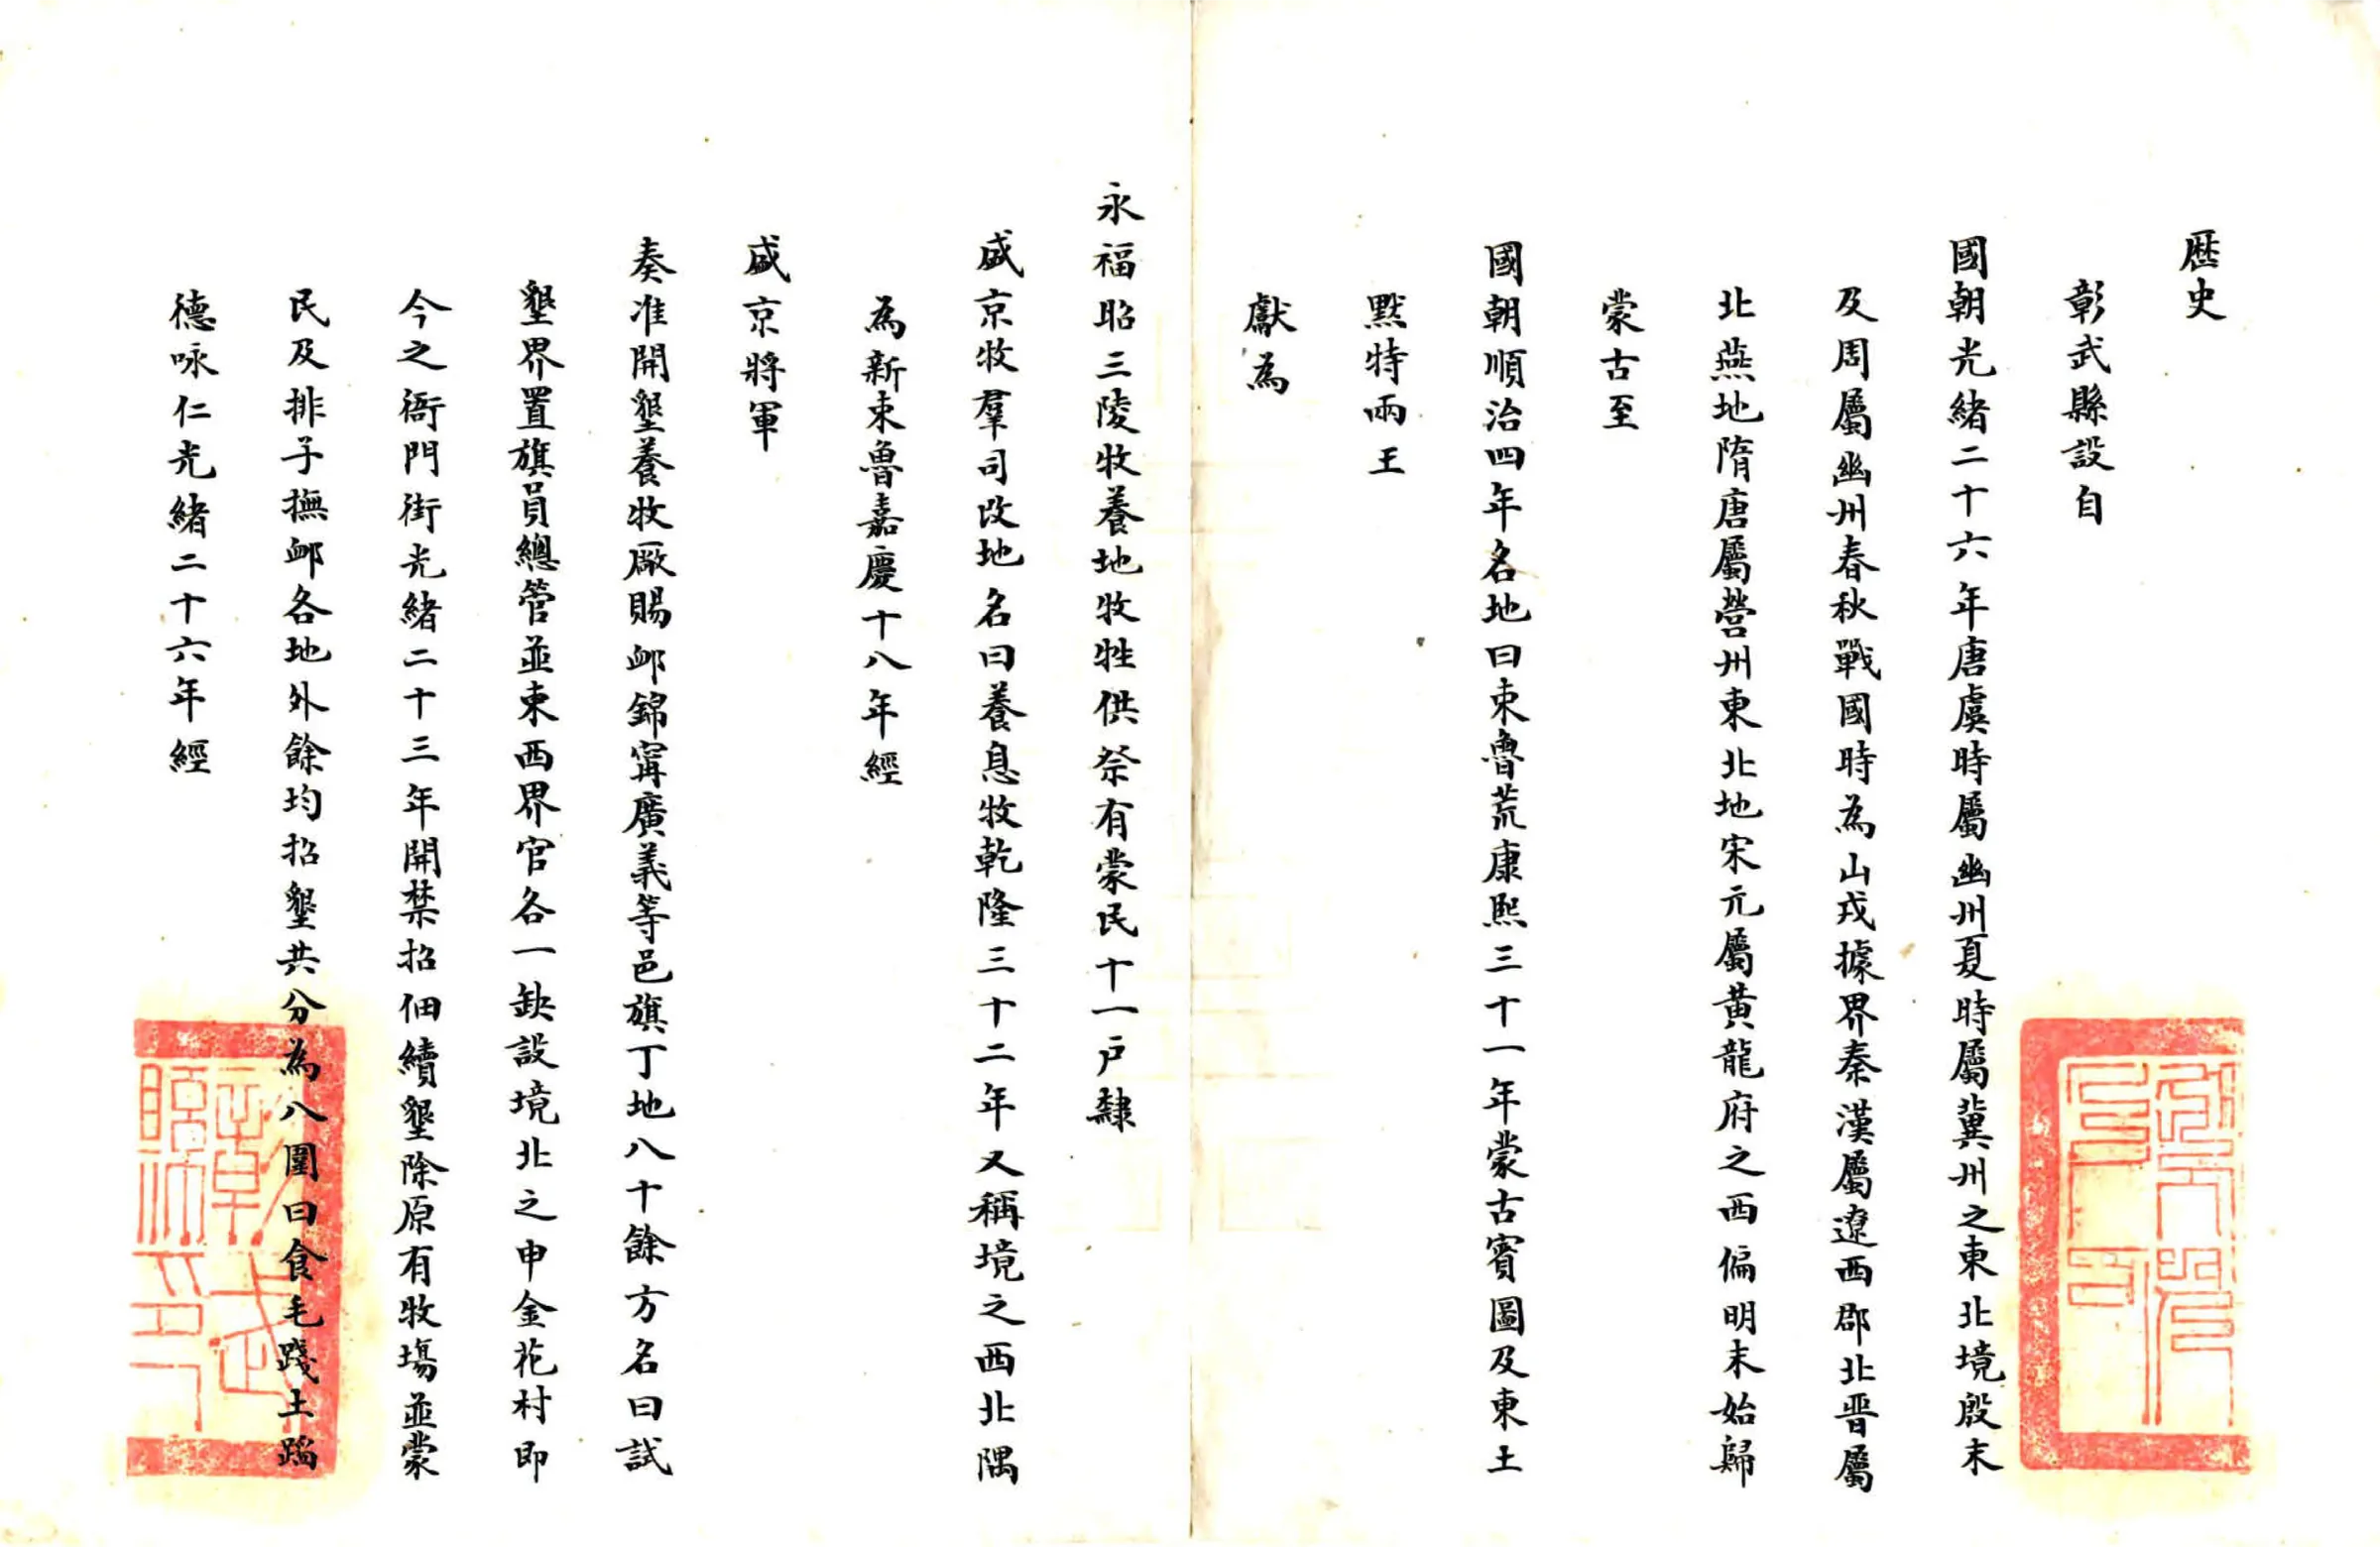 歷史
彰武縣設自
國朝光緒二十六年唐虞時屬幽州夏時屬冀州之東北境殷末
及周屬幽州春秋戰國時為山戎據界秦漢屬遼西郡北晉屬
北燕地隋唐屬營州東北地宋元屬黃龍府之西偏明末始歸
蒙古至
國朝順治四年名地曰束魯荒康熙三十一年蒙古賓圖及東土
默特兩王
獻為
永福昭三陵牧養地牧牲供祭有蒙民十一戶隸
盛京牧羣司改地名曰養息牧乾隆三十二年又稱境之西北隅
為新束魯嘉慶十八年經
盛京將軍
奏准開墾養牧厰賜卹錦甯廣義等邑旗丁地八十餘方名曰試
墾界置旗員總管並東西界官各一缺設境北之申金花村即
今之衙門街光緒二十三年開禁招佃續墾除原有牧場並蒙
民及排子撫卹各地外餘均招墾共分為八圍曰食毛踐土蹈
德咏仁光緒二十六年經
彰武縣印